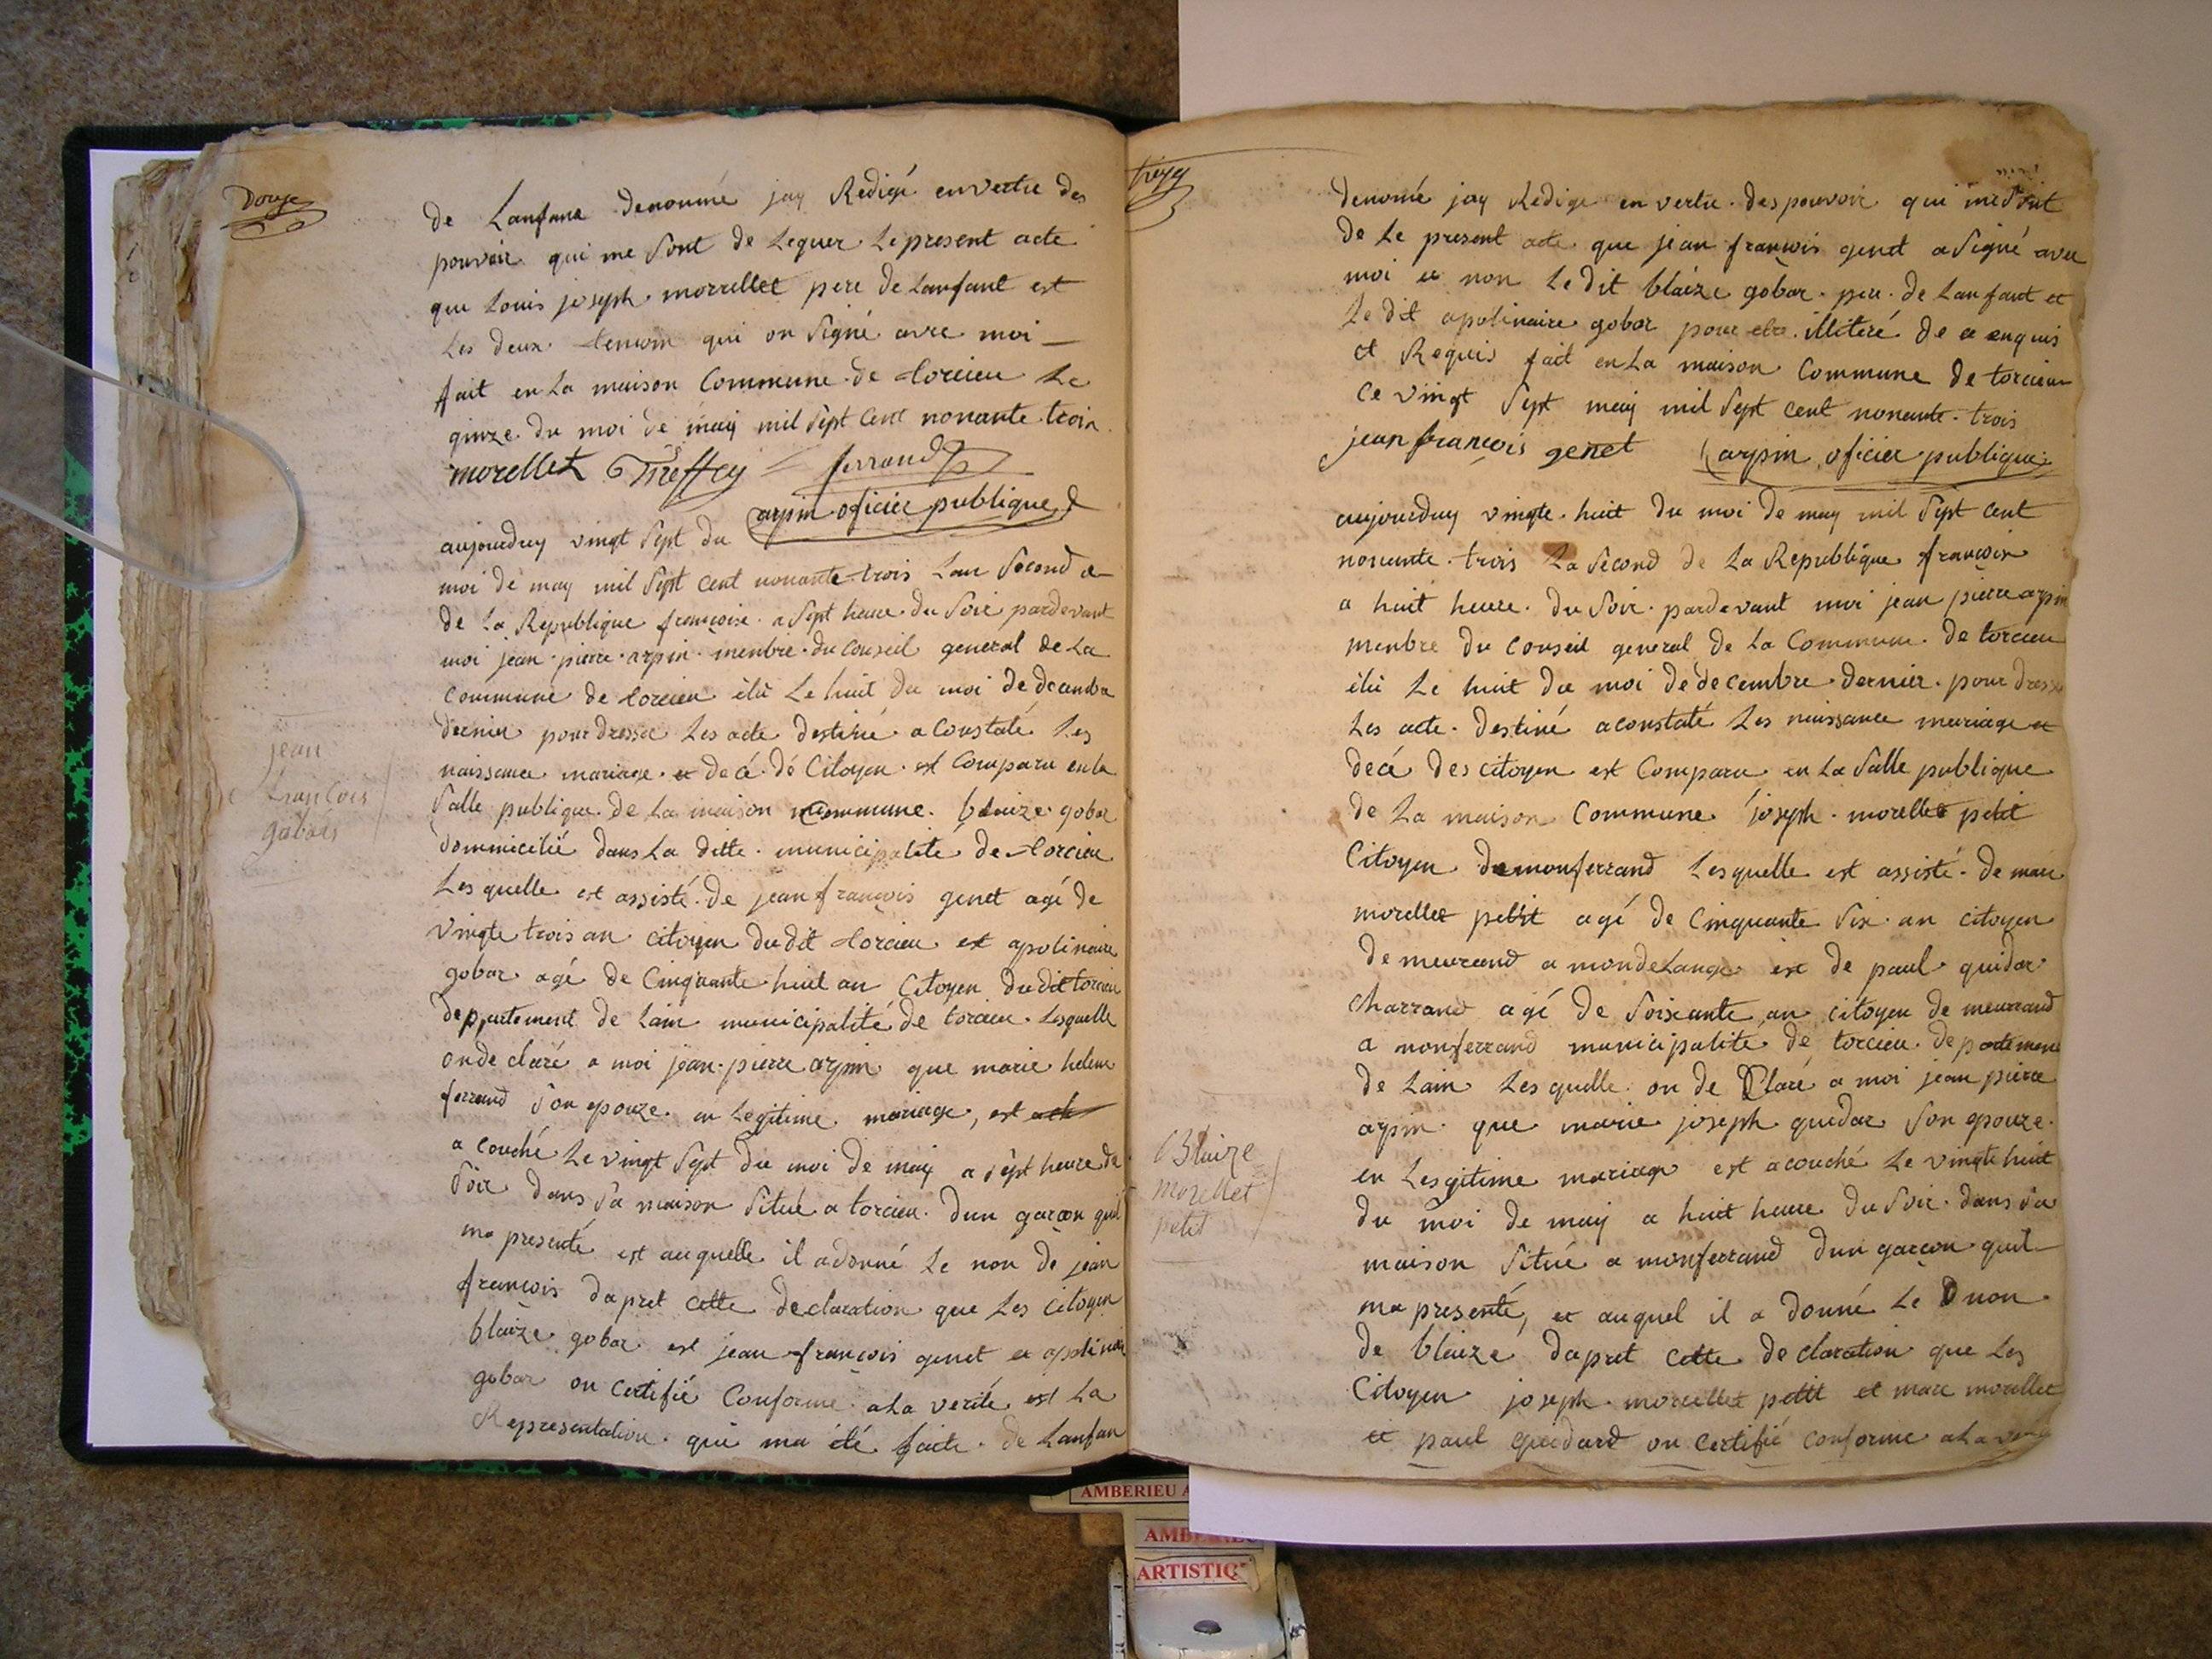 Douze
de Lanfans denommé jay Redigé en vertu des
pouvoir qui me Sont de Leguer Le present acte
que Louis joseph morrellet pere de Lanfant est
Les deux temoin qui on Signé avre moi
fait en La maison Commune de torcieu Le
ginze du moi de may mil Sept Cent nonante trois
morellet Treffey ferrand
arpin oficier publique
aujourduy vingt Sept du
moi de may mil Sept Cent nonante trois Lan Second de
de La Republique françoise a Sept heure du Soir pardevant
moi jean pierre arpin menbre du Conseil general de La
Commune de torcieu élu Le huit du moi de decembre
dernier pour dresser Les acte destiné a Constaté Les
naissance mariage et decé de Citoyen est Comparu en la
Salle publique de La maison Commune blaize gobar
domicilié dans La ditte municipalité de torcieu
Les quelle est assisté de jean françois genet agé de
vingte trois an citoyen dudit torcieu et apolinaire
gobar agé de Cinquante huit an Citoyen dudit torcieu
departement de Lain municipalité de torcieu Lesquelle
on de claré a moi jean pierre arpin que marie helene
ferrand Son epouze en Legitime mariage, est
a couché Le vingt Sept du moi de may a Sept heure du
Soir dans Sa maison Situé a torcieu dun garcon quil
ma presenté est auquelle il a donné Le non de jean
françois dapret cette declaration que Les Citoyen
blaize gobar est jean françois genet et apolinaire
gobar on Certifié Conforme a La verité est La
Representation qui ma été faite de Lanfan
jean
françois
gobars
treze
denomé jay Redige en vertu des pouvoir qui me Sont
de Le present acte que jean françois genet a Signé avec
moi et non Le dit blaize gobar pere de Lanfant et
Le dit apolinaire gobar pour etre illiteré de ce enquis
et Requis fait en La maison Commune de torcieu
Ce vingt Sept may mil Sept cent nonante trois
jean françois genet arpin oficier publique
aujourduy vingte huit du moi de may mil Sept Cent
nonante trois La Second de La Republique françoise
a huit heure du Soir pardevant moi jean pierre arpin
menbre du Conseil general de La Commune de torcieu
élu Le huit du moi de decembre dernier pour dresse
Les acte destiné a constaté Les naissance mariage et
decé des citoyen est Comparu en La Salle publique
de La maison Commune joseph morellet petit
Citoyen de monferrand Lesquelle est assisté de marc
morellet petit agé de Cinquante Six an citoyen
demeurand a mondelange et de paul guidar
charrand agé de Soixante an citoyen demeurand
a monferrand municipalité de torcieu departement
de Lain Lesquelle on de Claré a moi jean pierre
arpin que marie joseph guidar Son epouze
en Lesgitime mariage est acouché Le vingte huit
du moi de may a huit heure du Soir dans Sa
maison Situé a monferrand dun garcon quil
ma presenté, et auquel il a donné Le non
de blaize dapret cette declaration que Les
Citoyen joseph morellet petit et marc morellet
et paul guidard on Certifié Conforme a La
Blaize
morellet
petit
AMBERIEU A
AMBERIEU
ARTISTIQ